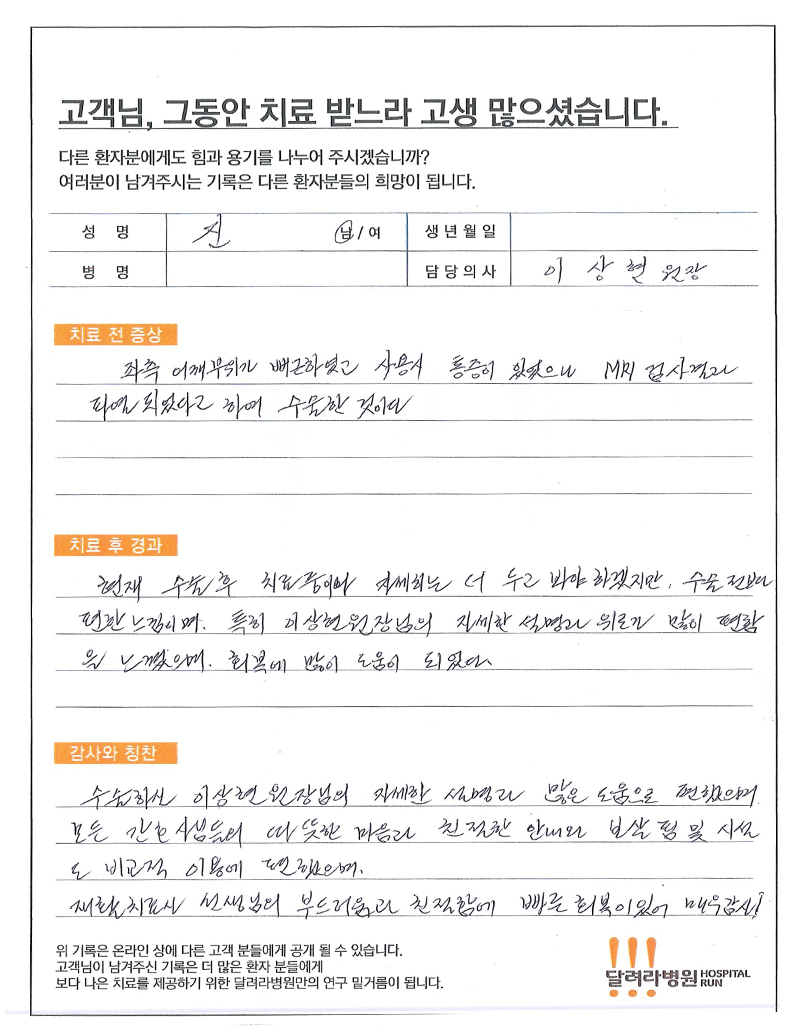 고객님, 그동안 치료 받느라 고생 많으셨습니다.
다른 환자분에게도 힘과 용기를 나누어 주시겠습니까?
여러분이 남겨주시는 기록은 다른 환자분들의 희망이 됩니다.
성 명 진 남 / 여 생년월일
병 명 담당의사 이상현 원장
치료 전 증상
좌측 어깨부위가 뻐근하였고 사용시 통증이 있었으나 MRI 검사결과
파열되었다고 하여 수술한 것이다
치료 후 경과
현재 수술 후 치료중이며 자세히는 더 두고 봐야 하겠지만, 수술 전보다
편한 느낌이며. 특히 이상현 원장님의 자세한 설명과 위로가 많이 편함
을 느꼈으며. 회복에 많이 도움이 되었다.
감사와 칭찬
수술하신 이상현 원장님의 자세한 설명과 많은 도움으로 편했으며
모든 간호사님들의 따뜻한 마음과 친절한 안내와 보살핌 및 시설
도 비교적 이용에 편했으며.
재활치료사 선생님의 부드러움과 친절함에 빠른 회복이 있어 매우감사!
위 기록은 온라인 상에 다른 고객 분들에게 공개 될 수 있습니다.
고객님이 남겨주신 기록은 더 많은 환자 분들에게
보다 나은 치료를 제공하기 위한 달려라병원만의 연구 밑거름이 됩니다.
달려라병원 HOSPITAL RUN